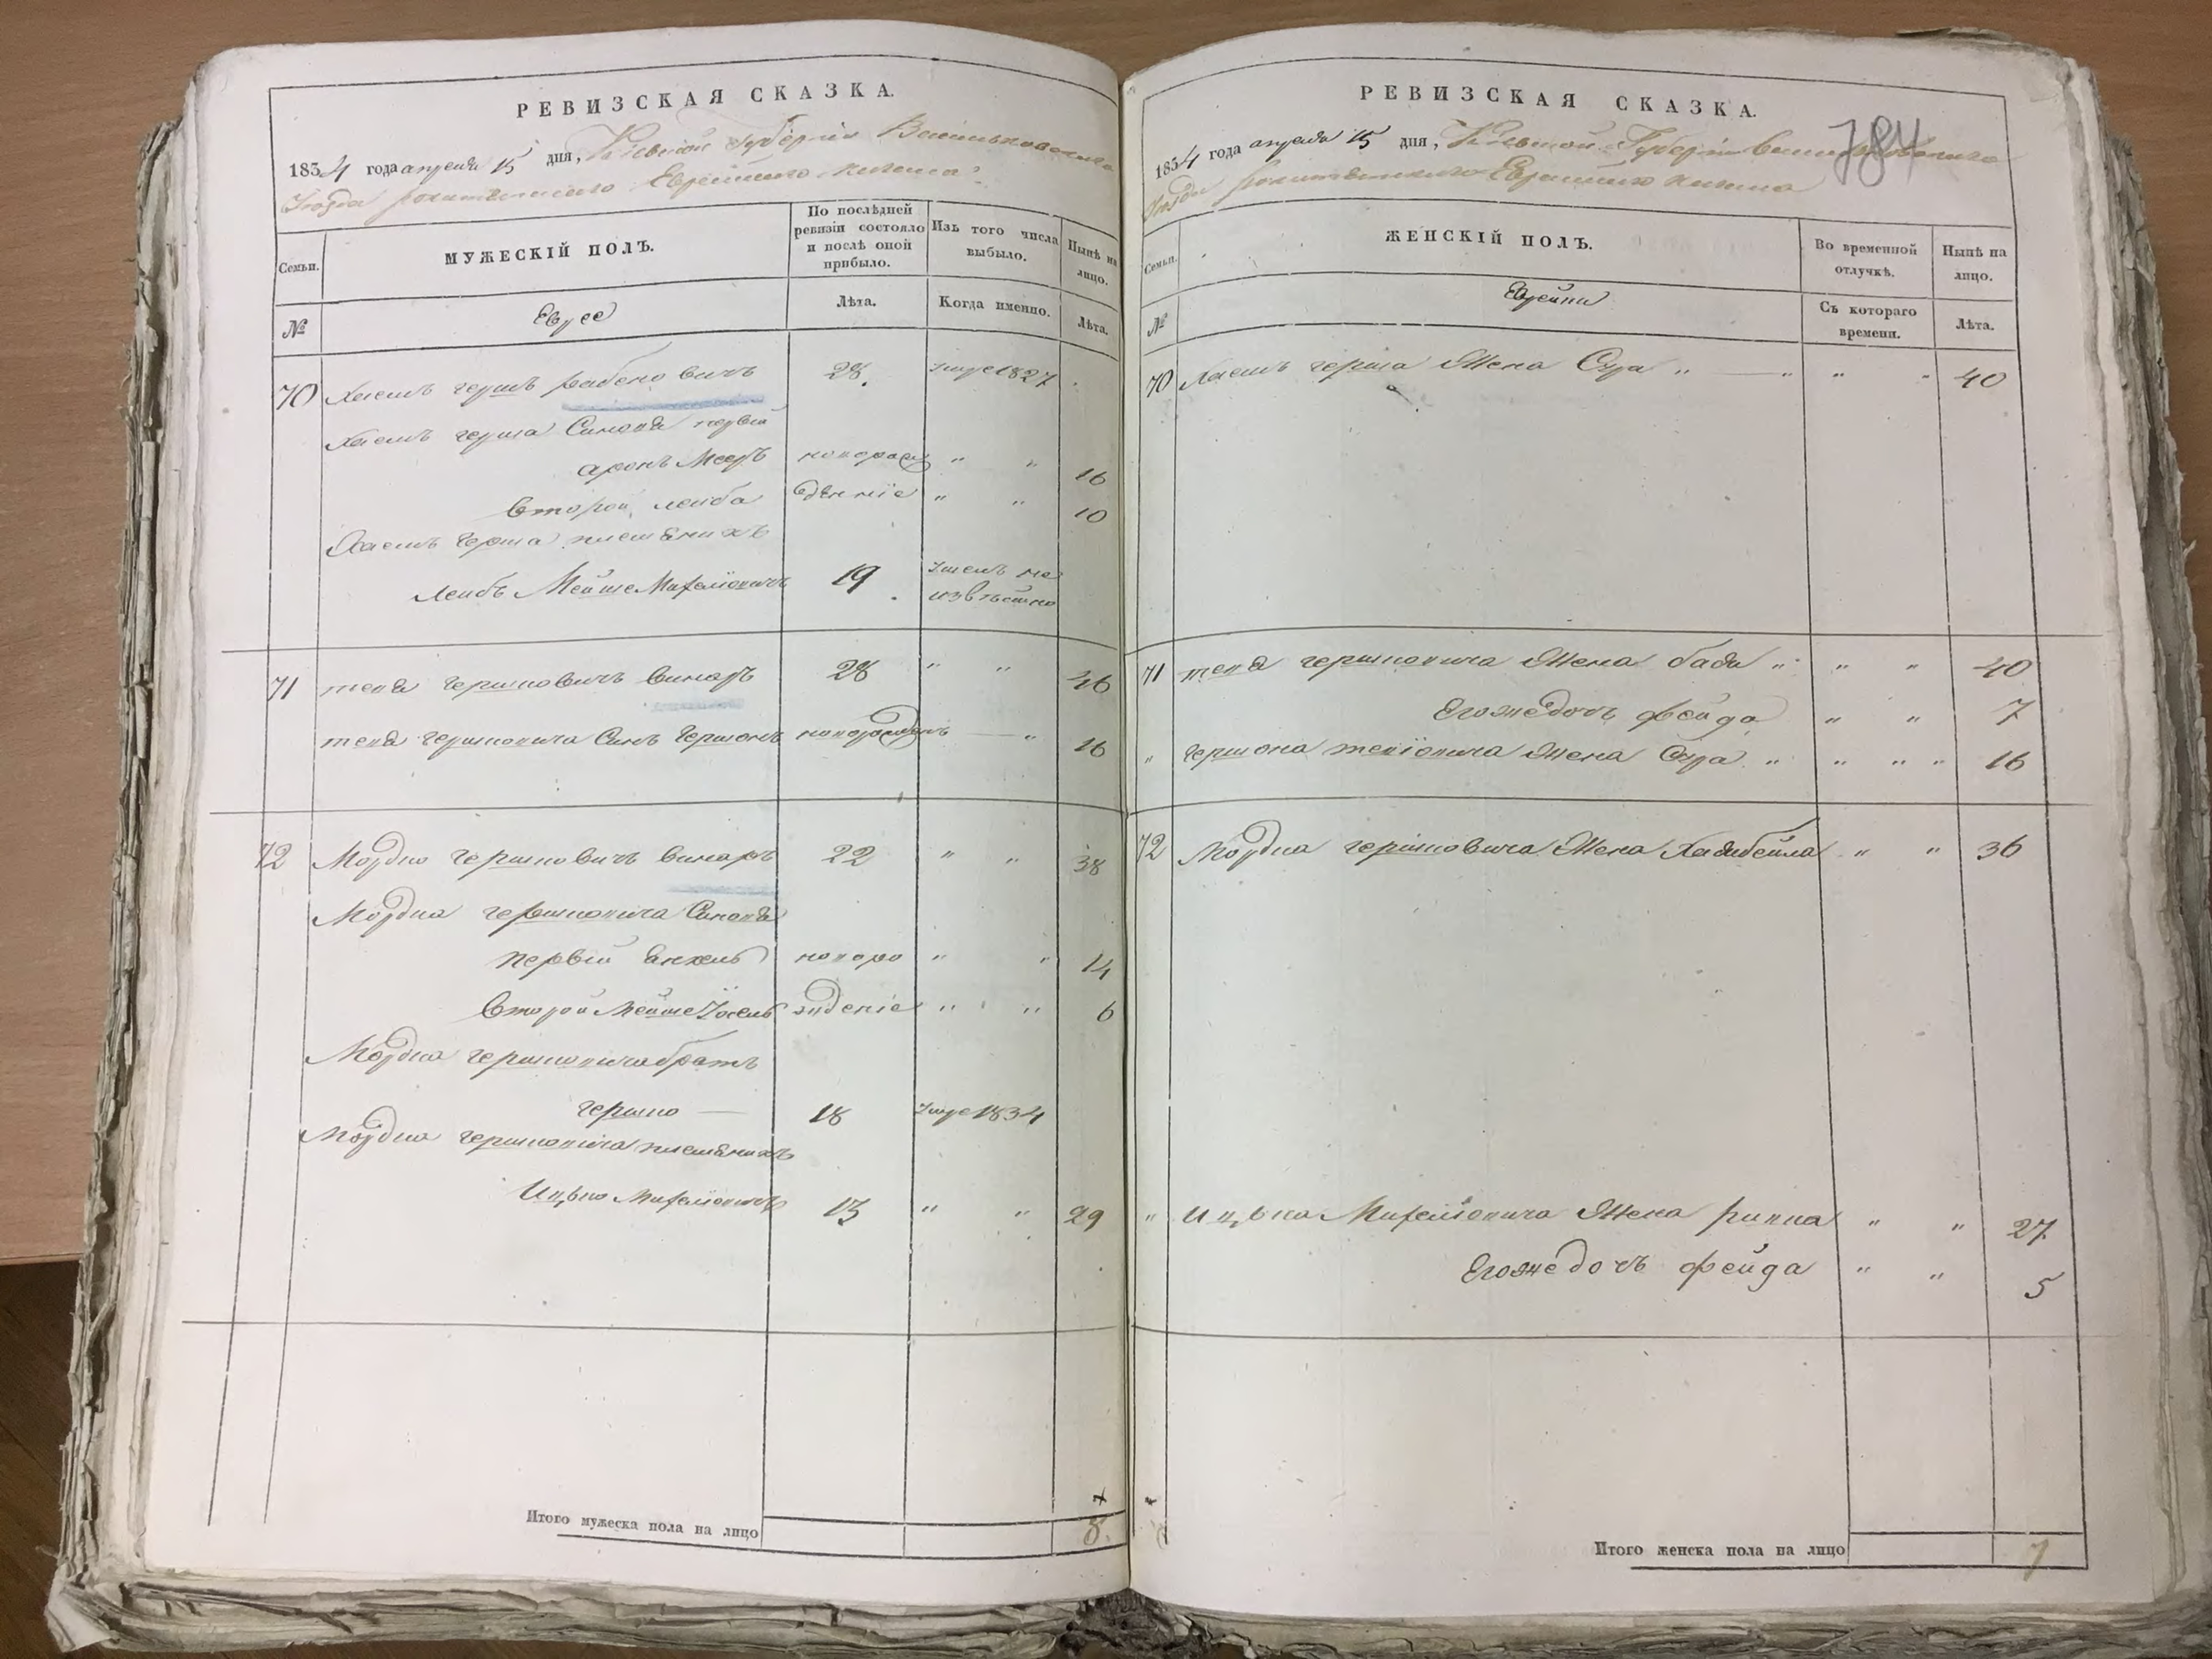 РЕВИЗСКАЯ СКАЗКА.
1834 года апреля 15 дня, Киевской Губернiи Васильковского
Уезда рокитянского Еврейского кагала
Семьи.
МУЖЕСКІЙ ПОЛЪ.
По послѣдней ревизіи состояло и послѣ оной прибыло.
Изъ того числа выбыло.
Нынѣ на лицо.
№
Еврее
Лѣта.
Когда именно.
Лѣта.
70 Хаемъ гершъ рабеновичъ 28. умре 1827
Хаемъ герша Синовя первій
аронъ Мееръ новорож " " 16
второй лейба дѣнніе " " 10
Хаемъ Герша племяникъ
лейбъ Мейше 19 ушелъ не
извѣстно
71 тевя гершковичъ винаръ 28 " " 46
тевя гершковича Синъ Гершонъ " 16
72 Мордко гершковичъ винаръ 22 " " 38
Мордка гершковича Синовя
первій анхель новоро " " 14
второй Мейше Іосель жденіе " " 6
Мордка гершковича братъ
гершко — 18 умре 1834
Мордка гершковича племяникъ
Ицько 13 " " 29
Итого мужеска пола на лицо
7
8
РЕВИЗСКАЯ СКАЗКА.
784
1834 года апреля 15 дня, Киевской Губернiи Васильковского
Уезда рокитянского Еврейского кагала
Семьи.
ЖЕНСКІЙ ПОЛЪ.
Во временной отлучкѣ.
Нынѣ на лицо.
№
Еврейки
Съ котораго времени.
Лѣта.
70 Хаемъ герша Жена Сура " — " " " 40
71 тевя гершковича Жена бася " " " 40
Егожедочъ фейга " " 7
" гершона тевіовича Жена Сура " " " " 16
72 Мордка гершковича Жена Хаябейла " " 36
" Ицька Жена ривка " " 27
Егожедочъ фейга " " 5
Итого женска пола на лицо
7